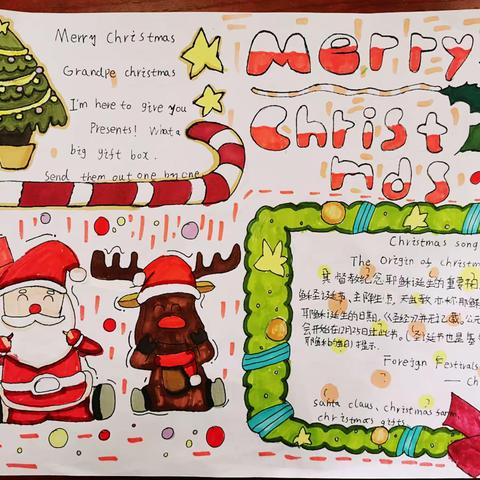 Merry Christmas
Grandpe christmas
I'm here to give you
Presents! What a
big gift box.
Send them out one by one
Merry
Christ
mas
Christmas song
The Origin of christm
基督教纪念耶稣诞生的重要
稣圣诞节、主降生节,天主教亦称耶稣
耶稣诞生的日期,《圣经》并无记载。公元
会开始在12月25日
圣诞节也是
Foreign Festivals
— Ch
santa claus, christmas
christmas gifts